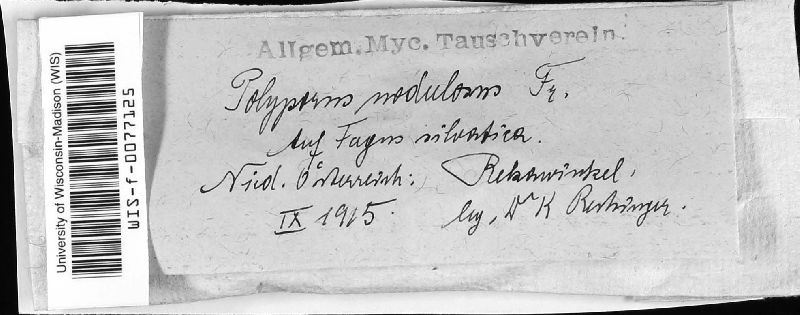 University of Wisconsin-Madison (WIS)
WIS-f-0077125
Allgem. Myc. Tauschverein.
Polyporus nodulosus Fr.
Auf Fagus silvatica.
Nied. Österreich: Rekawinkel.
IX 1915. leg. Dr K Rechinger.